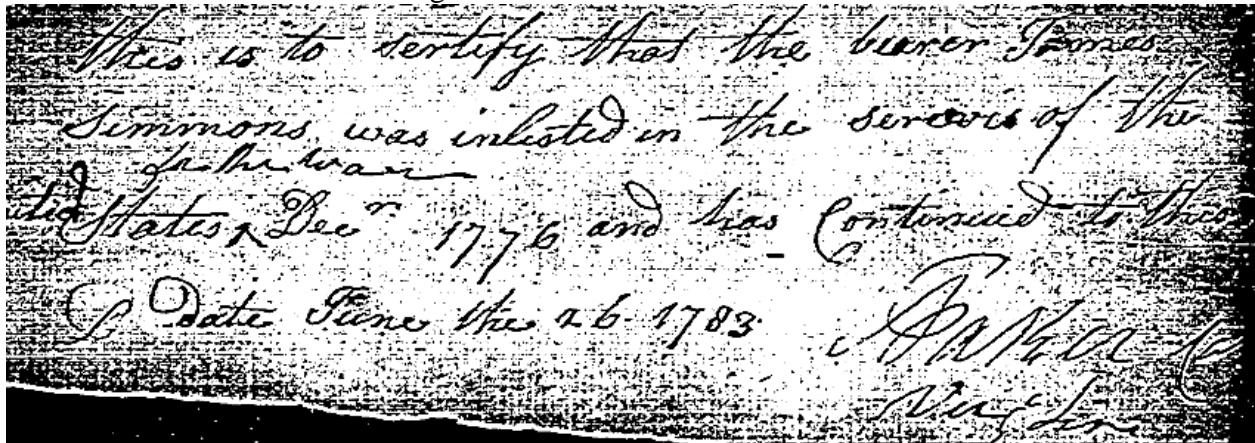 this is to sertify that the bearer James
Simmons was inlisted in the servis of the
for the war
States Decr 1776 and has Continued to this
date June the 26 1783
Parker